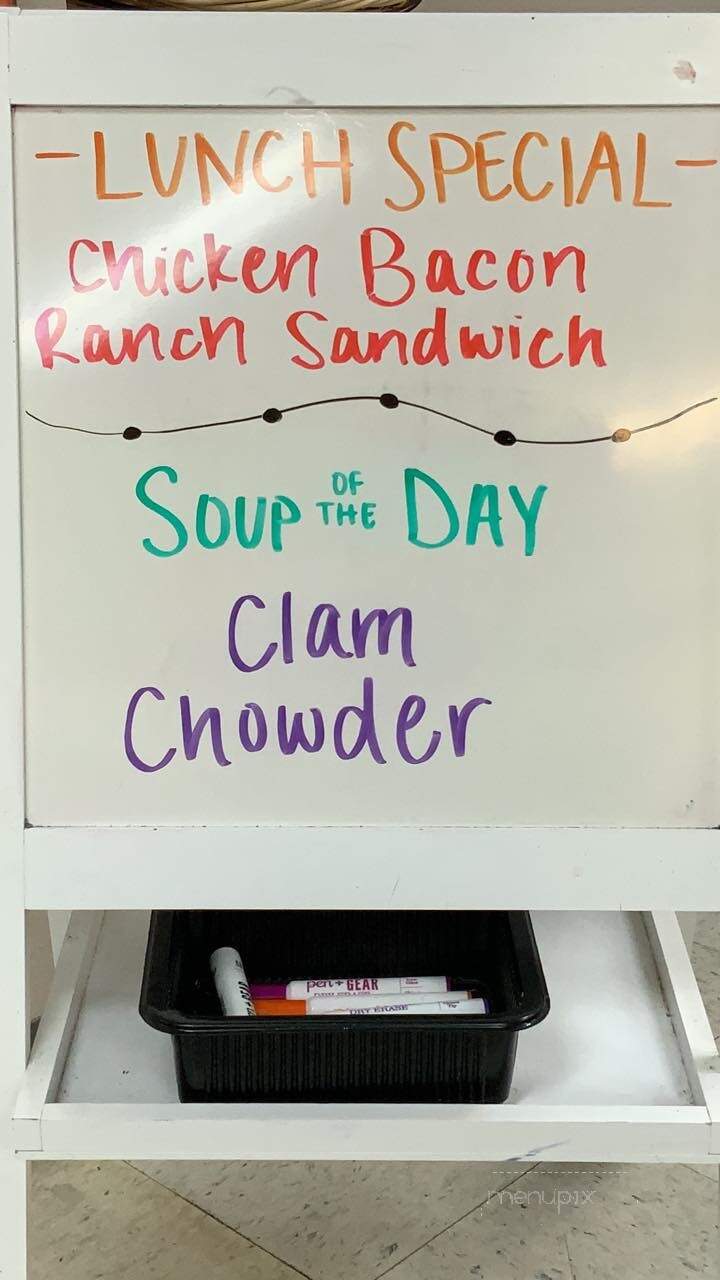 -LUNCH SPECIAL-
Chicken Bacon
Ranch Sandwich
SOUP OF THE DAY
Clam
Chowder
pen+GEAR
DRY ERASE
DRY ERASE
menupix